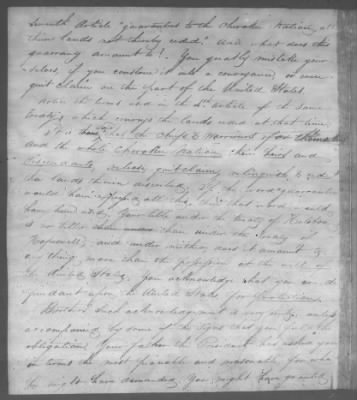 seventh Article "guarantees to the Cherokee Nation, all
their lands not hereby ceded." And what does this
guaranty amount to? You greatly mistake your-
selves, if you construe it into a conveyance, or even
quit claim on the part of the United States.
Notice the terms used in the 4th article of the same
treaty, which conveys the lands ceded at that time.
the Chiefs & Warriors, for themselves
and the whole Cherokee Nation, their heirs and
descendants, release, quit claim, relinquish & cede"
the lands therein described. If the word guarantee
would have all this, that word would
have been used. Your title under the treaty of Holston
is no better than under the treaty
Hopewell; and under neither does it amount to
any thing more than the possession at the will of
the United States. You acknowledge that you are de-
pendent upon the United States for protection.
Brothers, such acknowledgment is very idle, unless
accompanied by some of the signs that you feel the
obligation. Your father the President has asked you
in terms the most peaceable and reasonable, for what
he might have demanded. You might have granted